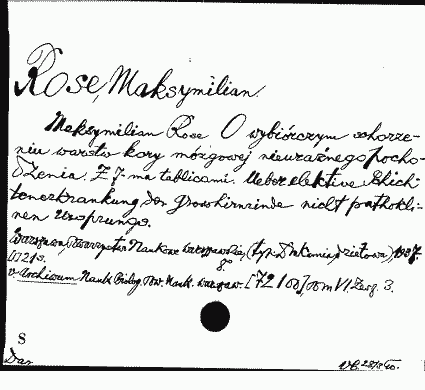 Rose, Maksymilian.
Maksymilian Rose O wybiórczym schorze-
niu warstw kory mózgowej nieuraźnego pocho-
dzenia. Z 7-ma tablicami. Ueber elektive Schich-
tenerkrankung der Grosshirnrinde nicht pathokli-
nen Ursprungs.
Warszawa, Towarzystwo Naukowe Warszawskie, 1937.
8°
v. Archivum Nauk Biolog. Tow. Nauk. Warszaw. tom VI. Zesz. 3.
S
Dar